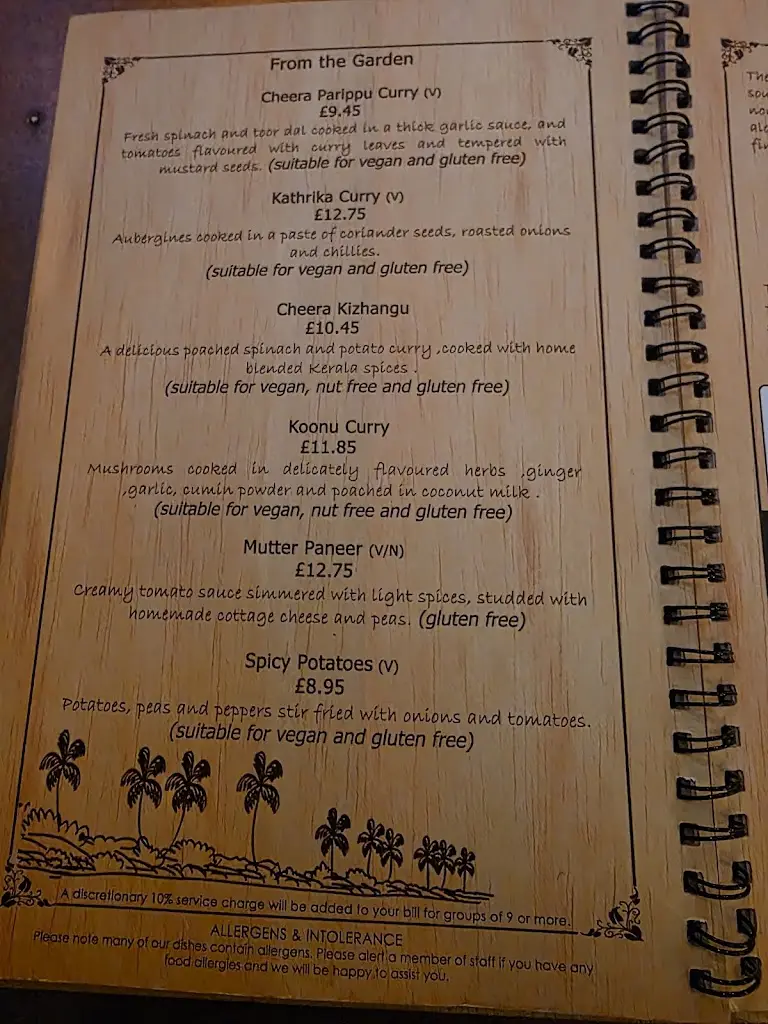 From the Garden
Cheera Parippu Curry (V)
£9.45
Fresh spinach and toor dal cooked in a thick garlic sauce, and
tomatoes flavoured with curry leaves and tempered with
mustard seeds. (suitable for vegan and gluten free)
Kathrika Curry (V)
£12.75
Aubergines cooked in a paste of coriander seeds, roasted onions
and chillies.
(suitable for vegan and gluten free)
Cheera Kizhangu
£10.45
A delicious poached spinach and potato curry ,cooked with home
blended Kerala spices .
(suitable for vegan, nut free and gluten free)
Koonu Curry
£11.85
Mushrooms cooked in delicately flavoured herbs ,ginger
,garlic, cumin powder and poached in coconut milk .
(suitable for vegan, nut free and gluten free)
Mutter Paneer (V/N)
£12.75
Creamy tomato sauce simmered with light spices, studded with
homemade cottage cheese and peas. (gluten free)
Spicy Potatoes (V)
£8.95
Potatoes, peas and peppers stir fried with onions and tomatoes.
(suitable for vegan and gluten free)
A discretionary 10% service charge will be added to your bill for groups of 9 or more.
ALLERGENS & INTOLERANCE
Please note many of our dishes contain allergens. Please alert a member of staff if you have any
food allergies and we will be happy to assist you.